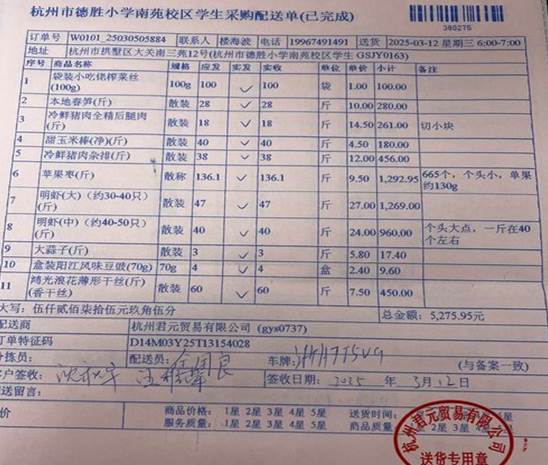 杭州市德胜小学南苑校区学生采购配送单(已完成)
380275
订单号 W0101_25030505884 联系人 楼海波 电话 19967491491 送货 2025-03-12 星期三 6:00-7:00
地址 杭州市拱墅区大关南三苑12号(杭州市德胜小学南苑校区学生 GSJY0163)
序 商品名称 规格 应发 实发 实收 单位 单价 小计 备注
1 袋装小吃佬榨菜丝(100g) 100g 100 ✓ 100 袋 1.00 100.00
2 本地春笋(斤) 散装 28 ✓ 28 斤 10.00 280.00
3 冷鲜猪肉全精后腿肉(斤) 散装 18 ✓ 18 斤 14.50 261.00 切小块
4 甜玉米棒(净)(斤) 散装 40 ✓ 40 斤 4.50 180.00
5 冷鲜猪肉杂排(斤) 散装 38 ✓ 38 斤 12.00 456.00
6 苹果枣(斤) 散称 136.1 ✓ 136.1 斤 9.50 1,292.95 665个，个头小，单果约130g
7 明虾(大)(约30-40只)(斤) 散装 47 ✓ 47 斤 27.00 1,269.00
8 明虾(中)(约40-50只)(斤) 散装 40 ✓ 40 斤 24.00 960.00 个头大点，一斤在40个左右
9 大蒜子(斤) 散装 3 ✓ 3 斤 5.80 17.40
10 盒装阳江风味豆豉(70g) 70g 4 ✓ 4 盒 2.40 9.60
11 鸿光浪花薄形干丝(斤)(香干丝) 散装 60 ✓ 60 斤 7.50 450.00
大写：伍仟贰佰柒拾伍元玖角伍分 总金额：5,275.95元
配送商 杭州君元贸易有限公司 (gys0737)
订单特征码 D14M03Y25T13154028
分拣员： 配送员： 车牌： (与备案一致)
客户签收： 签收日期：2025 年 3月12日
配送留言：
评价 商品价格：1星 2星 3星 4星 5星 送货时间：
服务质量：1星 2星 3星 4星 5星
杭州君元贸易有限公司
送货专用章